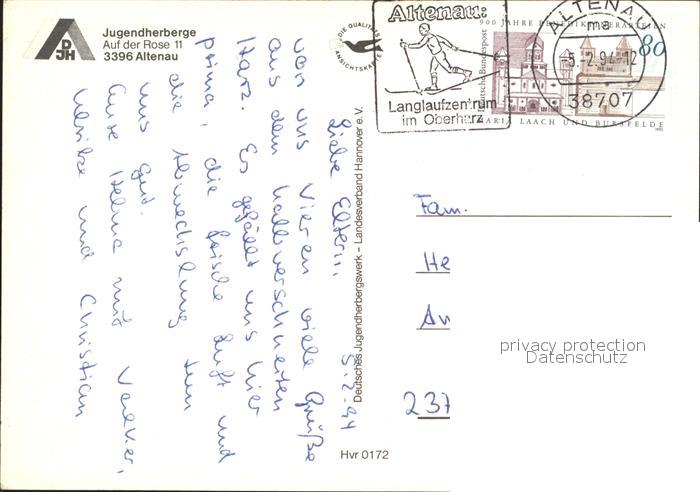 DJH
Jugendherberge
Auf der Rose 11
3396 Altenau
DIE QUALITÄTS
ANSICHTSKARTE
5.2.94
Liebe Eltern,
von uns Vieren viele Grüße
aus dem halbverschneiten
Harz. Es gefällt uns hier
prima, die frische Luft und
die Abwechslung tun
uns gut.
Eure Helma mit Volker,
Ulrike und Christian
Deutsches Jugendherbergswerk – Landesverband Hannover e.V.
Hvr 0172
Altenau:
Langlaufzentrum
im Oberharz
900 JAHRE BENEDIKTINERABTEIEN
Deutsche Bundespost
80
MARIA LAACH UND BURSFELDE
1993
ALTENAU
ma
-5.-2.94-12
38707
Fam.
He
An
237
privacy protection
Datenschutz